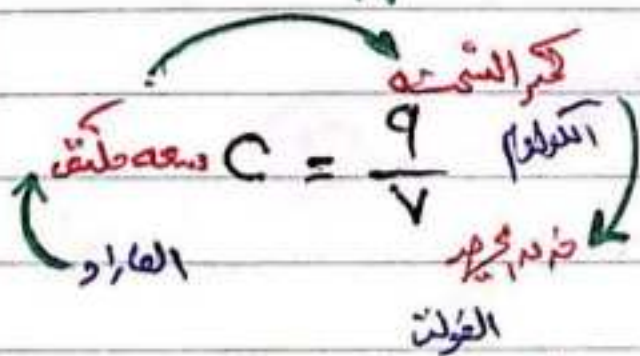 كمية الشحنة
سعة مكثف C = q / V الكولوم
الفاراد فرق الجهد
الفولت